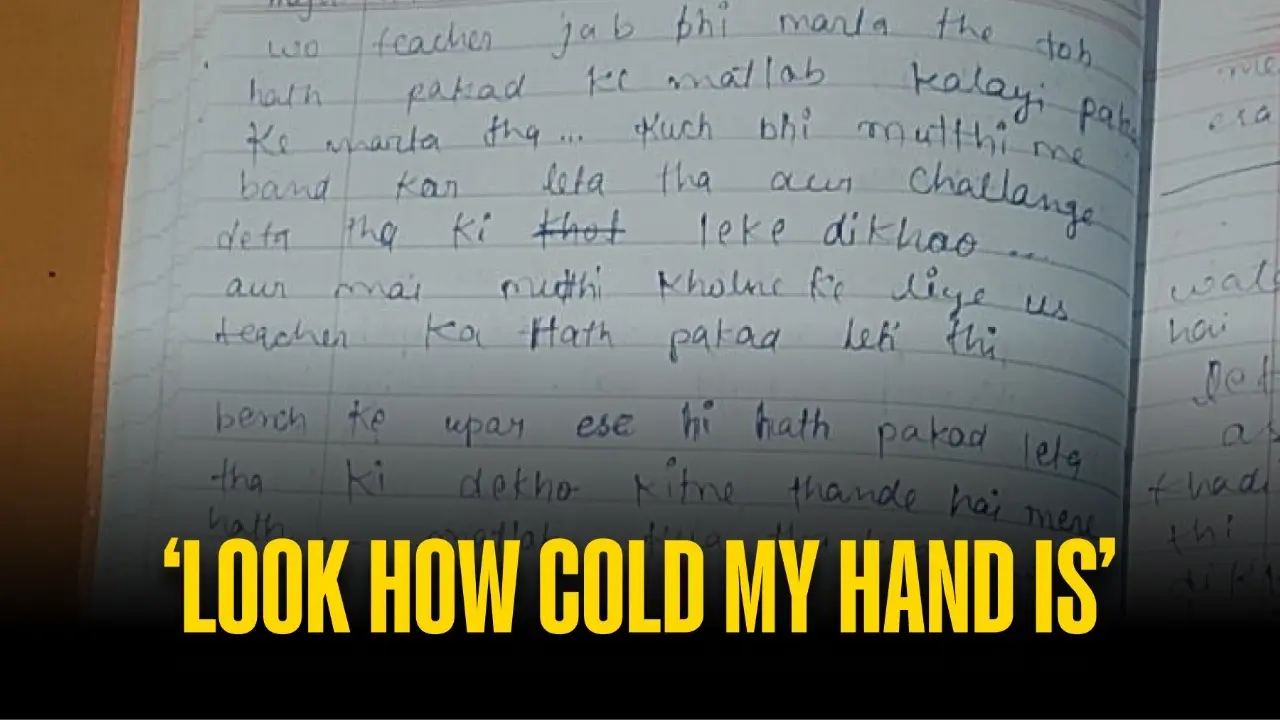 wo teacher jab bhi marta the toh
hath pakad ke matlab kalayi pak
ke marta tha... kuch bhi mutthi me
band kar leta tha aur challange
deta tha ki khot leke dikhao ...
aur mai mutthi kholne ke liye us
teacher ka Hath pakad leti thi
berch ke upar ese hi hath pakad leta
tha ki dekho kitne thande hai mere
hath matlab
‘LOOK HOW COLD MY HAND IS’
hai
thi